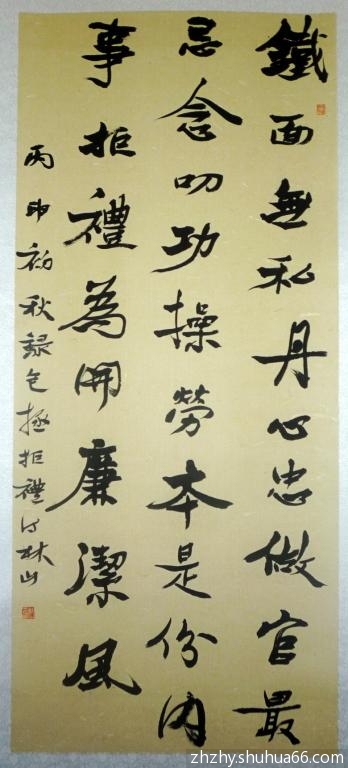 鐵面無私丹心忠做官最
忌念叨功操勞本是份內
事拒禮為開廉潔風
丙申初秋錄包拯拒禮詩林山
zhzhy.shuhua66.com